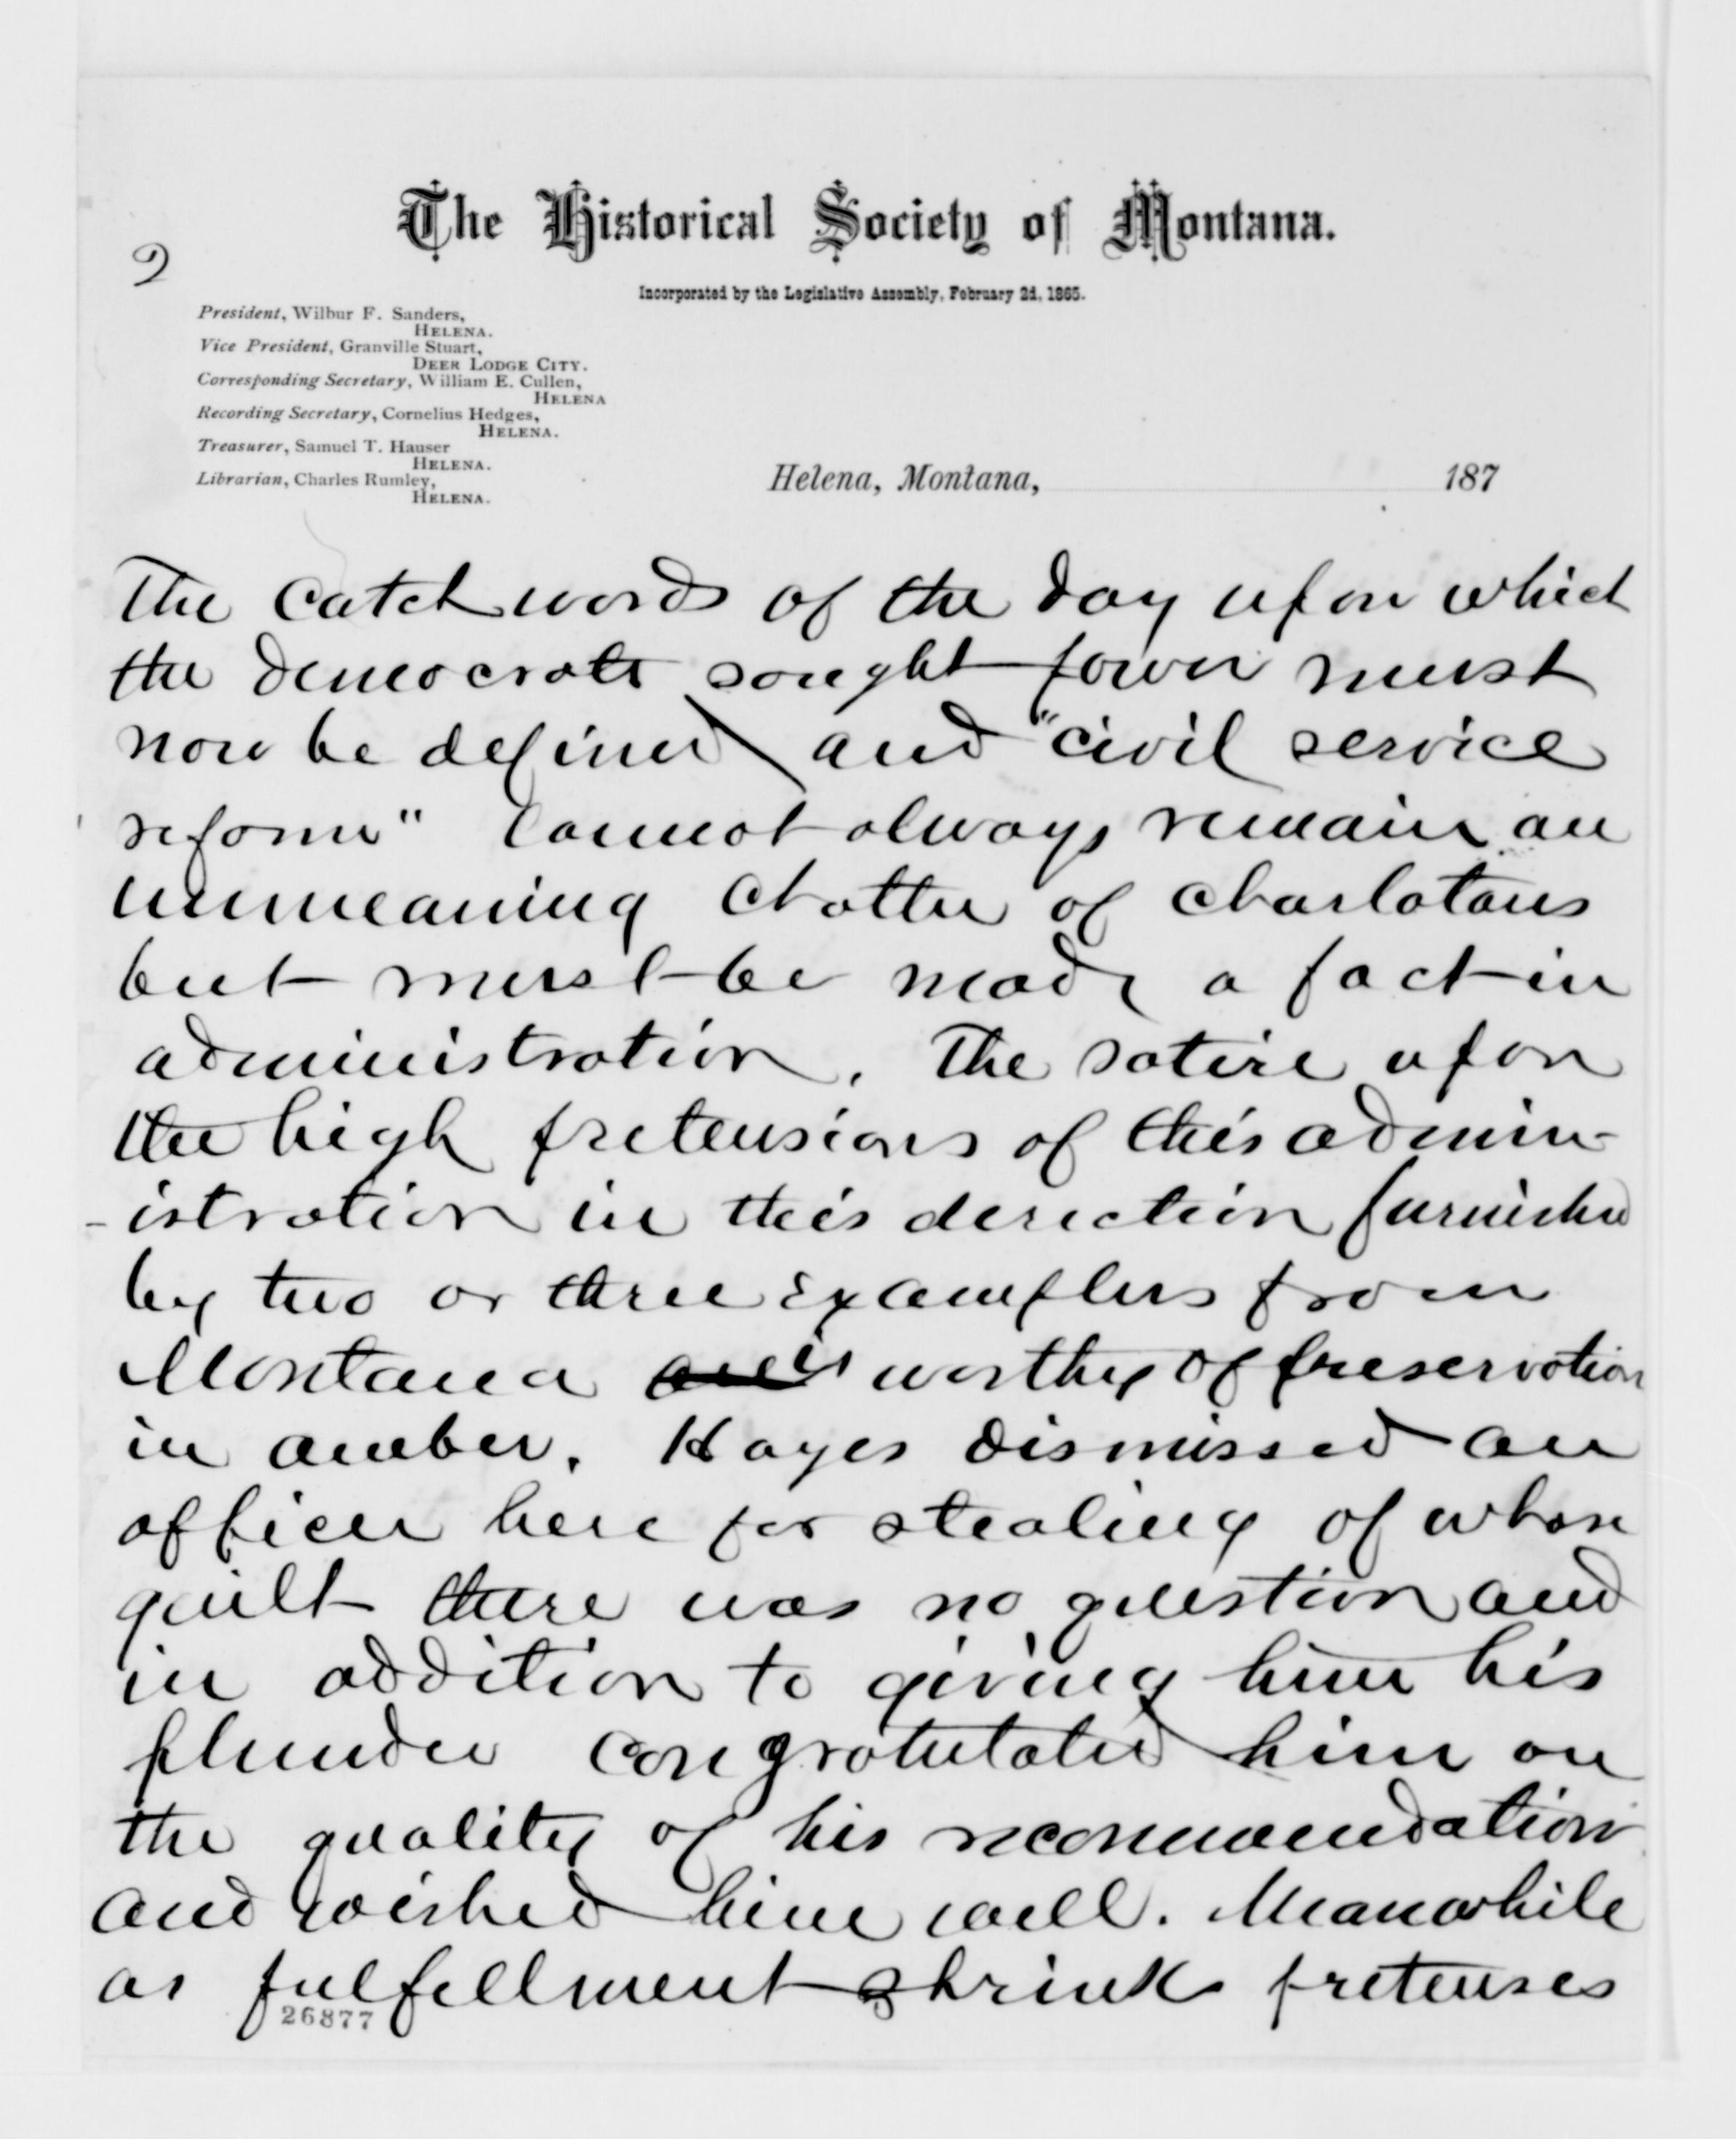 The Historical Society of Montana.
2
Incorporated by the Legislative Assembly, February 2d, 1865.
President, Wilbur F. Sanders,
HELENA.
Vice President, Granville Stuart,
DEER LODGE CITY.
Corresponding Secretary, William E. Cullen,
HELENA
Recording Secretary, Cornelius Hedges,
HELENA.
Treasurer, Samuel T. Hauser
HELENA.
Librarian, Charles Rumley,
HELENA.
Helena, Montana, 187
The catchwords of the day upon which
the democrats sought power must
now be defined and "civil service
reform" cannot always remain an
unmeaning chatter of charlatans
but must be made a fact in
administration. The satire upon
the high pretensions of this admin-
-istration in this direction furnished
by two or three examples from
Montana is worthy of preservation
in amber. Hayes dismissed an
officer here for stealing of whose
guilt there was no question and
in addition to giving him his
plunder congratulated him on
the quality of his recommendation
and wished him well. Meanwhile
as fulfellment shrinks pretenses
26877